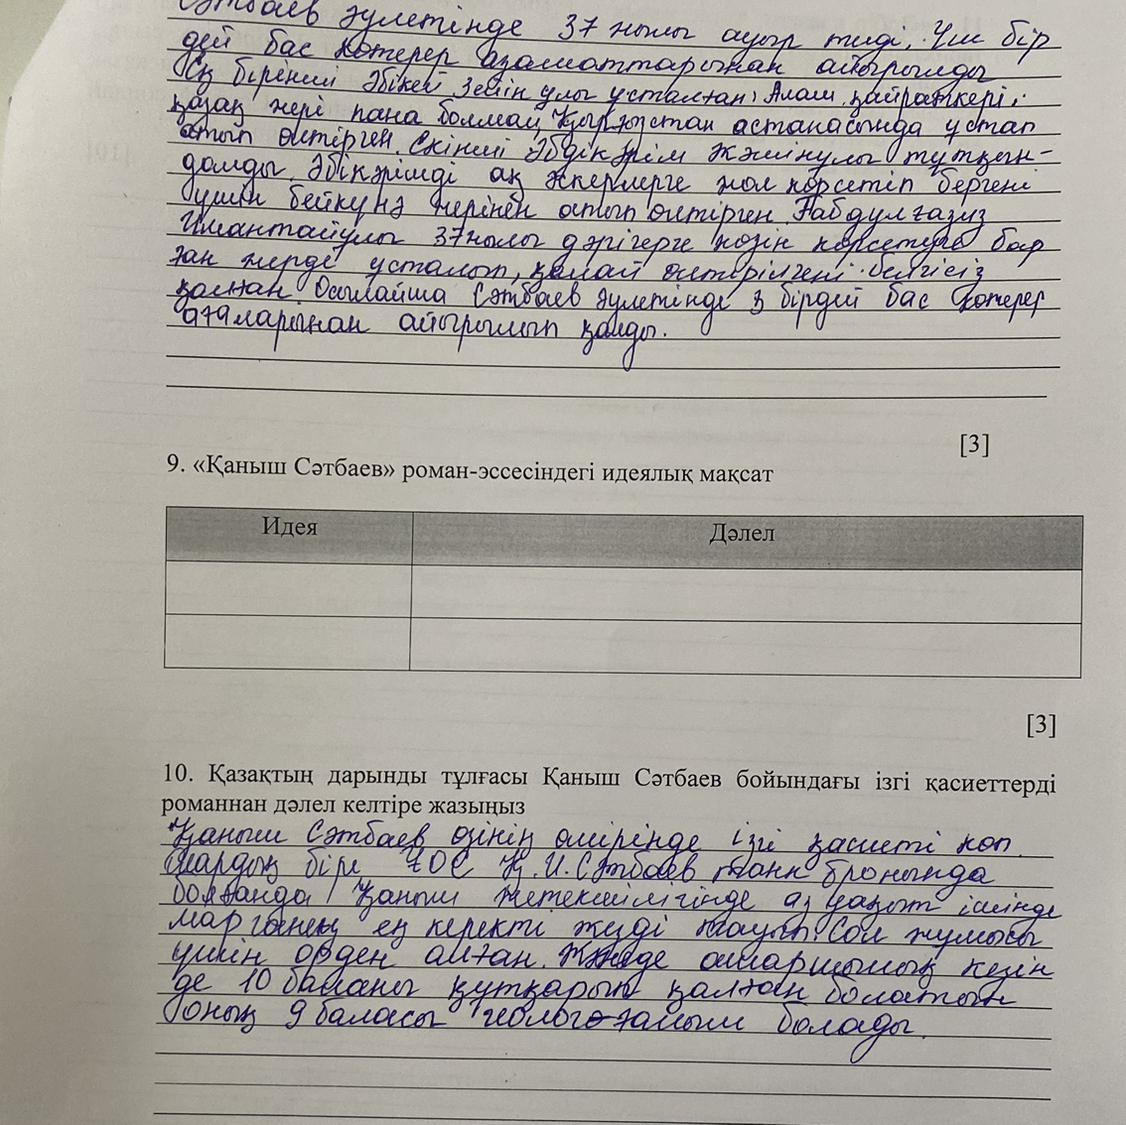 Сәтбаев әулетінде 37 жылы ауыр тиді. Үш бір
дей бас көтерер азаматтарынан айырылды
Ең бірінші Әбікей Зейін ұлы ұсталған, Алаш қайраткері,
қазақ жері пана болмай, Қырғызстан астанасында ұстап
атып өлтірген. Екінші Әбдікәрім Жәминұлы тұтқын-
далды. Әбікәрімді ақ әскерлерге жол көрсетіп бергені
үшін бейкүнә жерінен атып өлтірген. Ғабдулғазиз
Имантайұлы 37 жылы дәрігерге көзін көрсетуге бар
ған жерде ұсталып, қалай өлтірілгені белгісіз
қалған. Осылайша Сәтбаев әулетінде 3 бірдей бас көтерер
ағаларынан айырылып қалды.
[3]
9. «Қаныш Сәтбаев» роман-эссесіндегі идеялық мақсат
Идея Дәлел
[3]
10. Қазақтың дарынды тұлғасы Қаныш Сәтбаев бойындағы ізгі қасиеттерді
романнан дәлел келтіре жазыңыз
Қаныш Сәтбаев өзінің өмірінде ізгі қасиеті көп.
Олардың бірі ҰОС Қ.И.Сәтбаев танк бронында
болғанда Қаныш жетекшілігінде аз уақыт ішінде
марганең ең керекті жерді тауып. Сол жұмысы
үшін орден алған. Және де ашаршылық кезін
де 10 баланы құтқарып қалған болатын
оның 9 баласы геолог-ғалым болады.